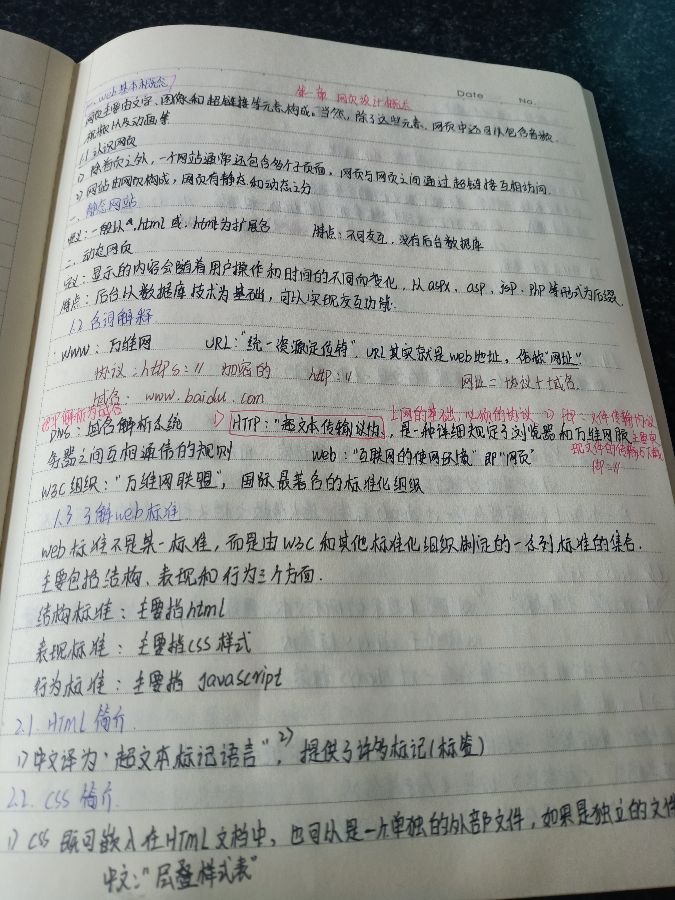 第一章 网页设计概述
Date No.
一、web基本概念
网页主要由文字、图像和超链接等元素构成。当然,除了这些元素,网页中还可以包含音频、
视频以及动画等
1.1 认识网页
1) 除首页之外,一个网站通常还包含多个子页面,网页与网页之间通过超链接互相访问.
2) 网站由网页构成,网页有静态和动态之分
一、静态网站
定义:一般以*.html或.htm为扩展名 特点:不可交互,没有后台数据库
二、动态网页
定义:显示的内容会随着用户操作和时间的不同而变化,以aspx、asp、jsp、php等形式为后缀.
特点:后台以数据库技术为基础,可以实现交互功能.
1.2 名词解释
:WWW:万维网 URL:“统一资源定位符”,URL其实就是web地址,俗称“网址”
协议:https:// 加密的 http:// 网址=协议+域名
域名:www.baidu.com
上网的基础,以外的协议 2) ftp:文件传输协议
DNS:域名解析系统 1) HTTP:“超文本传输协议”,是一种详细规定了浏览器和万维网服 主要实
务器之间互相通信的规则 web:“互联网的使网环境”即“网页” 现文件的传输与下载
ftp://
W3C组织:“万维网联盟”,国际最著名的标准化组织
1.3 了解web标准
web标准不是某一标准,而是由W3C和其他标准化组织制定的一系列标准的集合.
主要包括结构、表现和行为三个方面.
结构标准:主要指html
表现标准:主要指css样式
行为标准:主要指 Javascript
2.1. HTML简介.
1) 中文译为“超文本标记语言”, 2) 提供了许多标记(标签)
2.2. CSS 简介.
1) CSS既可嵌入在HTML文档中,也可以是一个单独的外部文件,如果是独立的文件
中文:“层叠样式表”